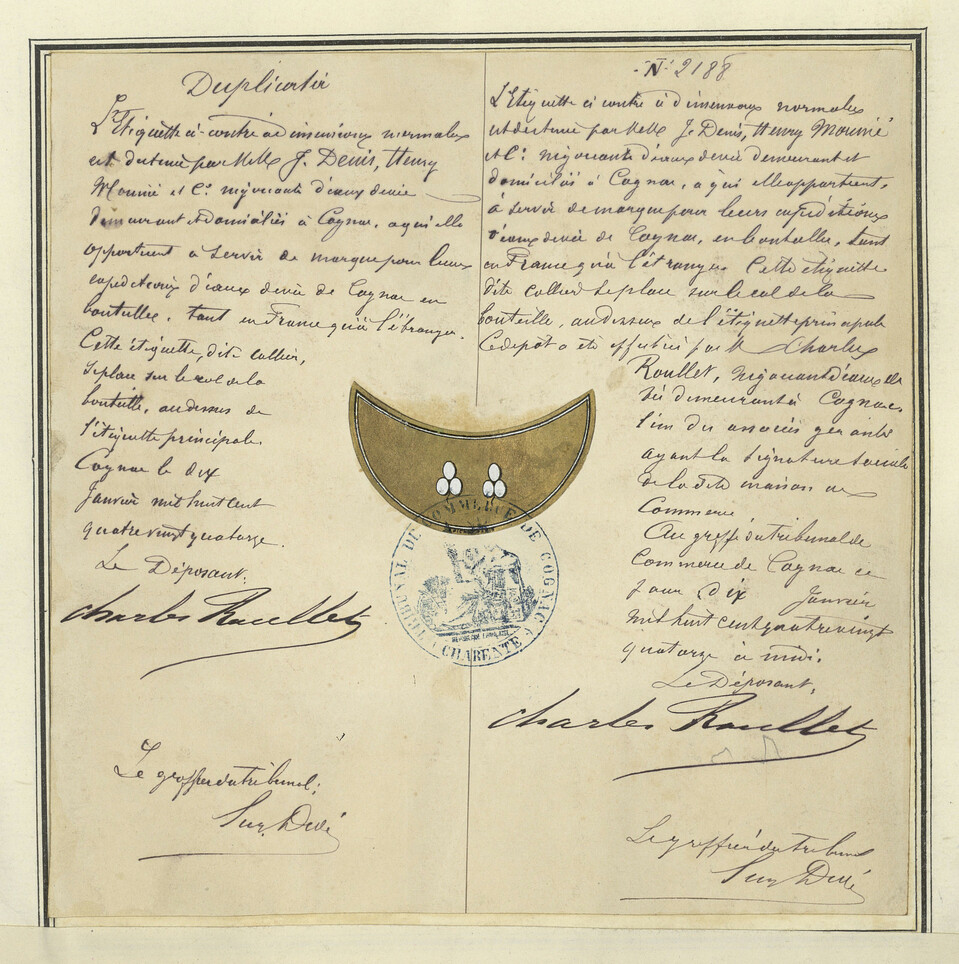 Duplicata
L'Etiquette ci-contre de dimensions normales
est destinée par MM. J. Denis, Henry
Mounié et Cie négociants d'eaux de vie
demeurant et domiciliés à Cognac, a qui elle
appartient à servir de marque pour leurs
expéditions d'eaux de vie de Cognac en
bouteilles, tant en France qu'à l'étranger.
Cette étiquette, dite collier,
se place sur le col de la
bouteille, au dessus de
l'étiquette principale.
Cognac le dix
Janvier mil huit cent
quatre vingt quatorze.
Le Déposant.
Charles Roullet
Le greffier du tribunal;
N° 2188
L'Etiquette ci contre à dimensions normales
est destinée par MM. J. Denis, Henry Mounié
et Cie négociants d'eaux de vie demeurant et
domiciliés à Cognac, a qui elle appartient,
à servir de marque pour leurs expéditions
d'eaux de vie de Cognac, en bouteilles, tant
en France qu'à l'étranger. Cette étiquette
dite collier se place sur le col de la
bouteille, au dessus de l'étiquette principale
Ce dépôt a été effectué par M. Charles
Roullet, négociant d'eaux de
vie demeurant à Cognac,
l'un des associés gérants
ayant la signature sociale
de la dite maison de
Commerce
Au greffe du tribunal de
Commerce de Cognac ce
jour dix Janvier
mil huit cent quatre vingt
quatorze à midi.
Le Déposant,
Charles Roullet
Le greffier du tribunal
TRIBUNAL DE COMMERCE DE COGNAC
REPUBLIQUE FRANÇAISE
(CHARENTE)